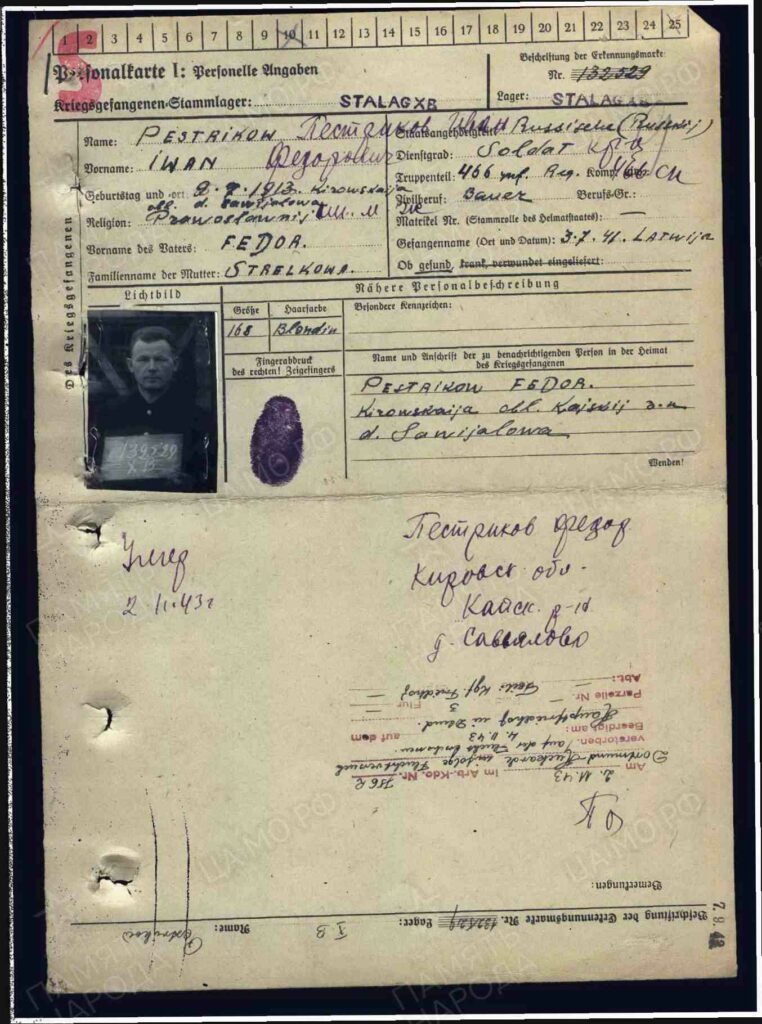 1 2 3 4 5 6 7 8 9 10 11 12 13 14 15 16 17 18 19 20 21 22 23 24 25
Personalkarte I: Personelle Angaben
Kriegsgefangenen-Stammlager: STALAG XB
Beschriftung der Erkennungsmarke
Nr. 132529
Lager: STALAG XB
Des Kriegsgefangenen
Name: PESTRIKOW Пестриков Иван
Vorname: IWAN Федорович
Geburtstag und -ort: 9.7.1913. Kirowskaija
obl. d. Sawijalowa
Religion: Prawoslawnij
Vorname des Vaters: FEDOR.
Familienname der Mutter: STRELKOWA.
Staatsangehörigkeit: Russische (Russkij)
Dienstgrad: Soldat
Truppenteil: 466 inf. Reg. Komp. usw.
Zivilberuf: Bauer Berufs-Gr.:
Matrikel Nr. (Stammrolle des Heimatstaates): —
Gefangenname (Ort und Datum): 3.7.41. Latwija
Ob gesund, krank, verwundet eingeliefert:
Lichtbild
Nähere Personalbeschreibung
Größe Haarfarbe
168 Blondin
Besondere Kennzeichen:
Fingerabdruck
des rechten! Zeigefingers
Name und Anschrift der zu benachrichtigenden Person in der Heimat
des Kriegsgefangenen
PESTRIKOW FEDOR.
Kirowskaija obl. Kajskij
d. Sawijalowa
Wenden!
132529
X B
Умер
2.11.43г
Пестриков Федор
Кировск обл.
Кайск. р-н
д. Савьялово
Beschriftung der Erkennungsmarke Nr. 132529 Lager: X B Name: Pestrikow
7.9.43
Bemerkungen:
Am 2.11.43 im Arb.-Kdo. Nr.
Dortmund-Huckarde infolge Fluchtversuch
verstorben. auf der Flucht
Beerdigt am: 4.11.43 auf dem
Hauptfriedhof in Dtmd.
Parzelle Nr. — Flur 3
Abt.: Teil: Kgf. Friedhof
ЦАМО РФ
ПАМЯТЬ
НАРОДА